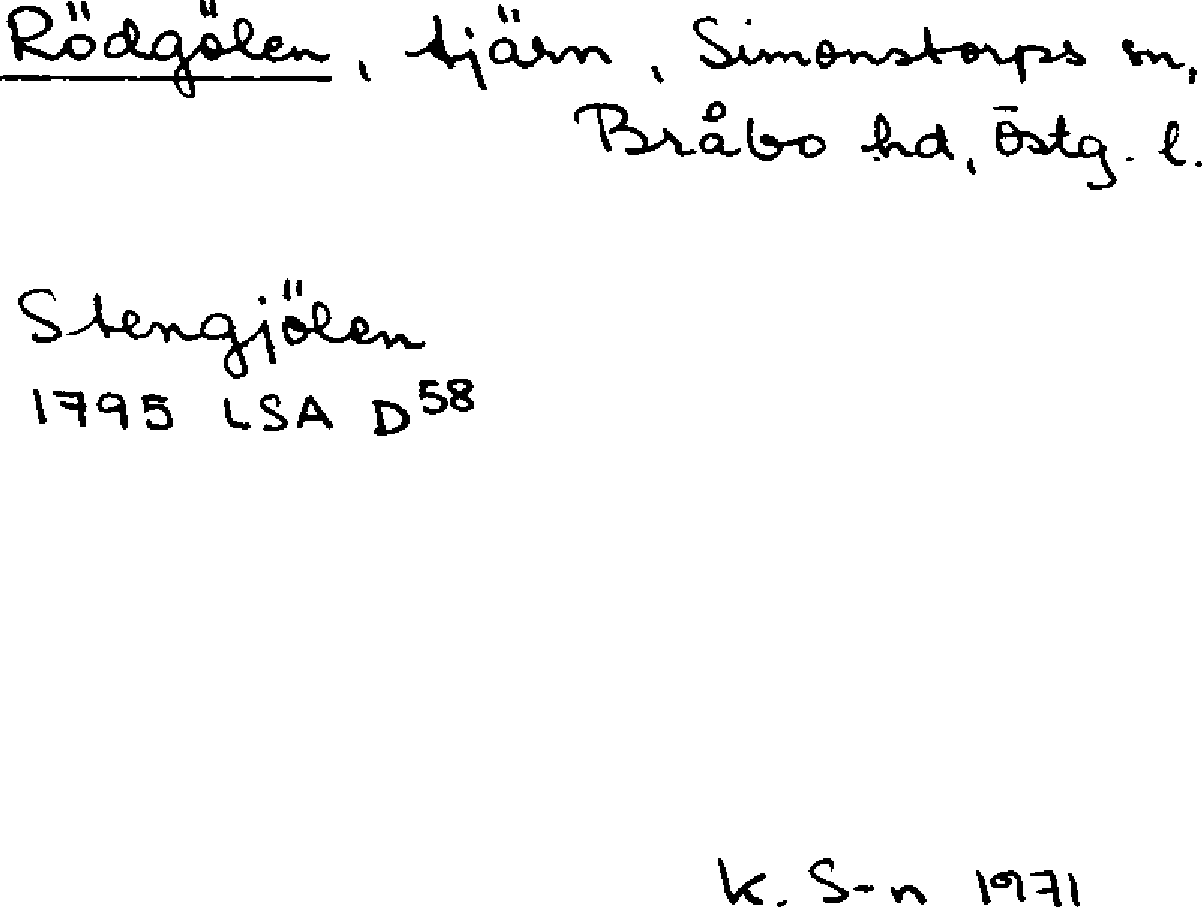 Rödgölen, tjärn, Simonstorps sn,
Bråbo hd, Östg. l.
Stengjölen
1795 LSA D58
K. S-n 1971